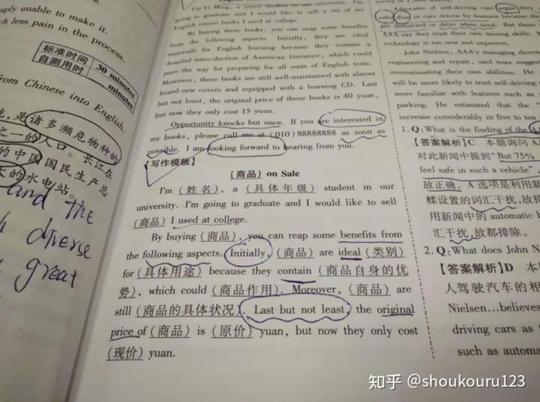 ply unable to make it.
less pain in the process.
标准时间 30 minutes
自测用时 minutes
from Chinese into English.
是诸多濒危物种的
之一的人口。长江在
的中国国民生产总
的水电站。
and the
diverse
great
going to graduate and I would like to sell a set of my
English course books I used at college.
By buying these books, you can reap some benefits
from the following aspects. Initially, they are ideal
materials for English learning because they contain a
detailed introduction of American literature, which could
pave the way for preparing for all sorts of English tests.
Moreover, these books are still well-maintained with almost
brand-new covers and equipped with a learning CD. Last
but not least, the original price of these books is 40 yuan,
but now they only cost 15 yuan.
Opportunity knocks but once. If you are interested in
my books, please call me at (010) 88888888 as soon as
possible. I am looking forward to hearing from you.
【写作模板】
(商品) on Sale
I'm (姓名), a (具体年级) student in our
university. I'm going to graduate and I would like to sell
(商品) I used at college.
By buying (商品), you can reap some benefits from
the following aspects. Initially, (商品) are ideal (类别)
for (具体用途) because they contain (商品自身的优
势), which could (商品作用). Moreover, (商品) are
still (商品的具体状况). Last but not least, the original
price of (商品) is (原价) yuan, but now they only cost
(现价) yuan.
AAA say they trust their own driving skills.
technology as too new and unproven.
John Nielsen, AAA's managing director
engineering and repair, said tests suggest
overestimating their own abilities. He
will be more likely to trust self-driving
more familiar with features such as
parking. He estimated that the
increase considerably in five to ten
1. Q: What is the finding of the
【答案解析】C 本题询问 AA
对此新闻中提到"But 75%
feel safe in such a vehicle"
故正确。A 选项是利用新
糅设置的词汇干扰,故
用新闻中的 automatic
汇干扰,故都排除。
2. Q: What does John N
【答案解析】D 本
人驾驶汽车的相
Nielsen...believes
driving cars as
such as automa
知乎 @shoukouru123